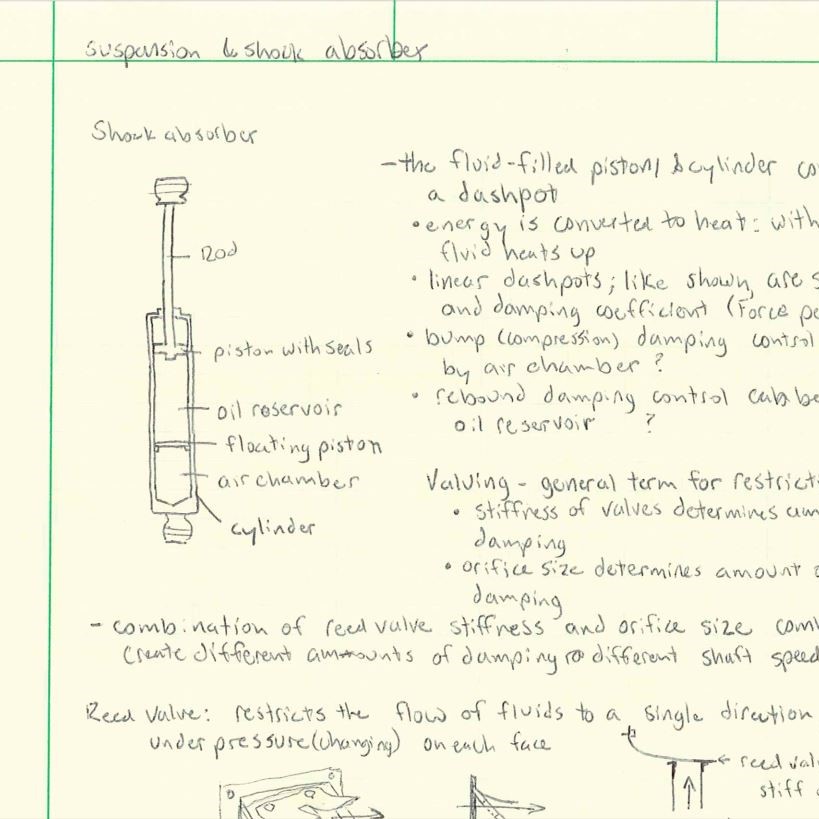 suspension & shock absorber
Shock absorber
rod
piston with seals
oil reservoir
floating piston
air chamber
cylinder
- the fluid-filled piston/ & cylinder co
a dashpot
• energy is converted to heat: with
fluid heats up
• linear dashpots; like shown, are s
and damping coefficient (Force pe
• bump (compression) damping control
by air chamber ?
• rebound damping control be
oil reservoir ?
Valving - general term for restrict
• stiffness of valves determines
damping
• orifice size determines amount o
damping
- combination of reed valve stiffness and orifice size com
create different amounts of damping different shaft speed
Reed valve: restricts the flow of fluids to a single direction
under pressure (changing) on each face
← reed val
stiff